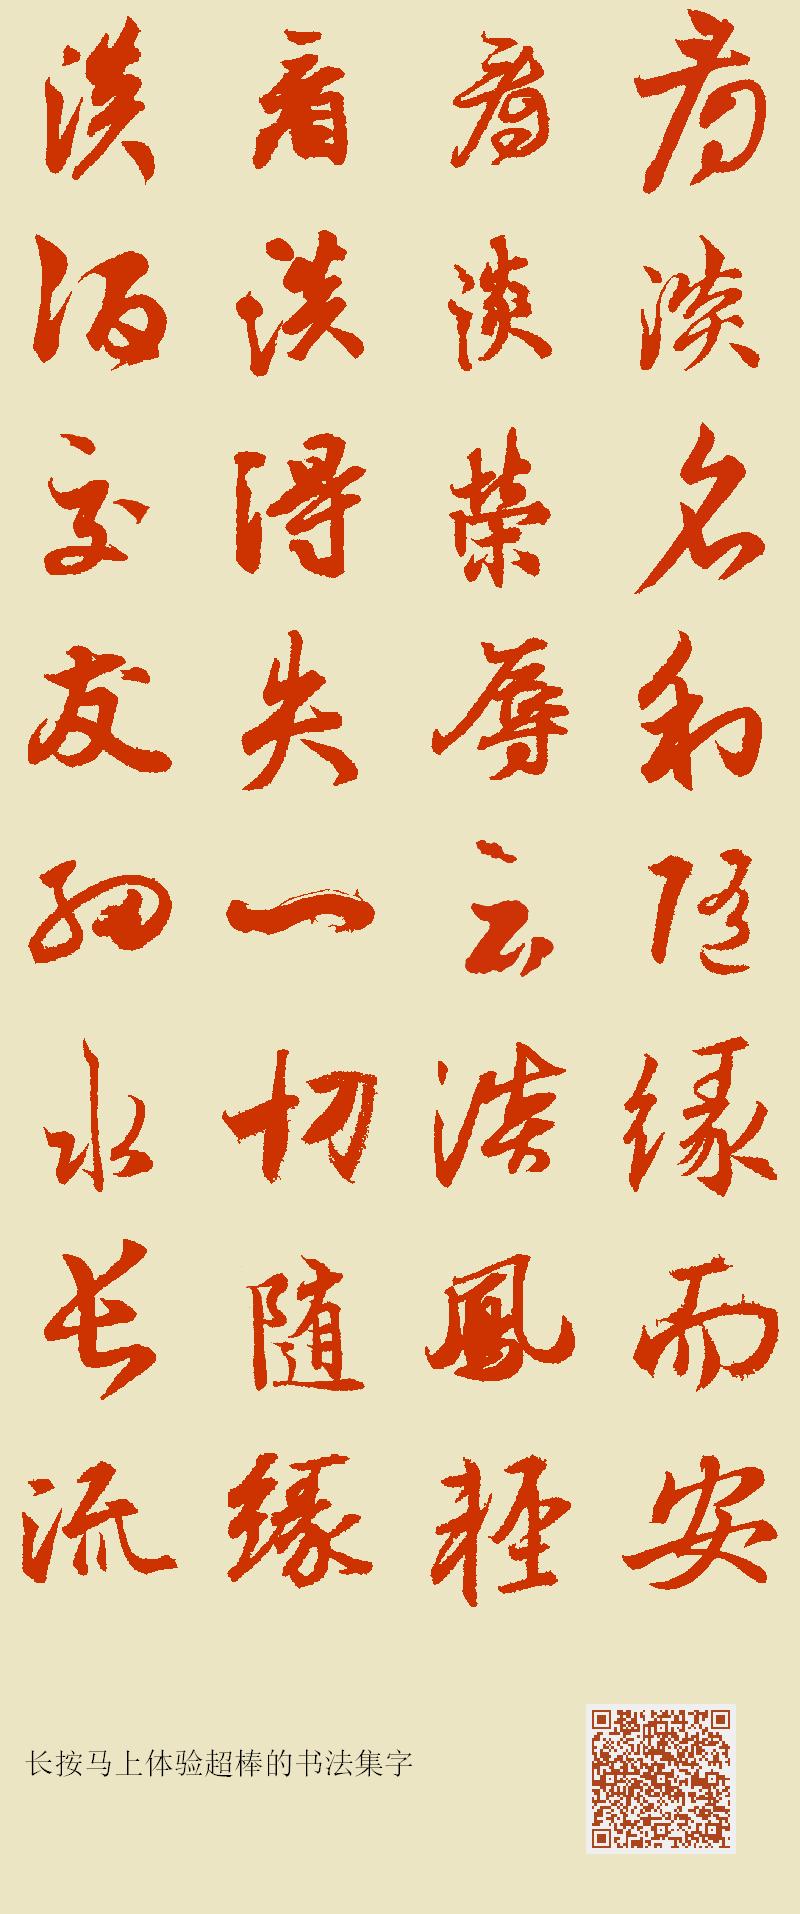 看淡名利随缘而安
看淡榮辱云淡風輕
看淡得失一切随缘
淡酒交友细水长流
长按马上体验超棒的书法集字